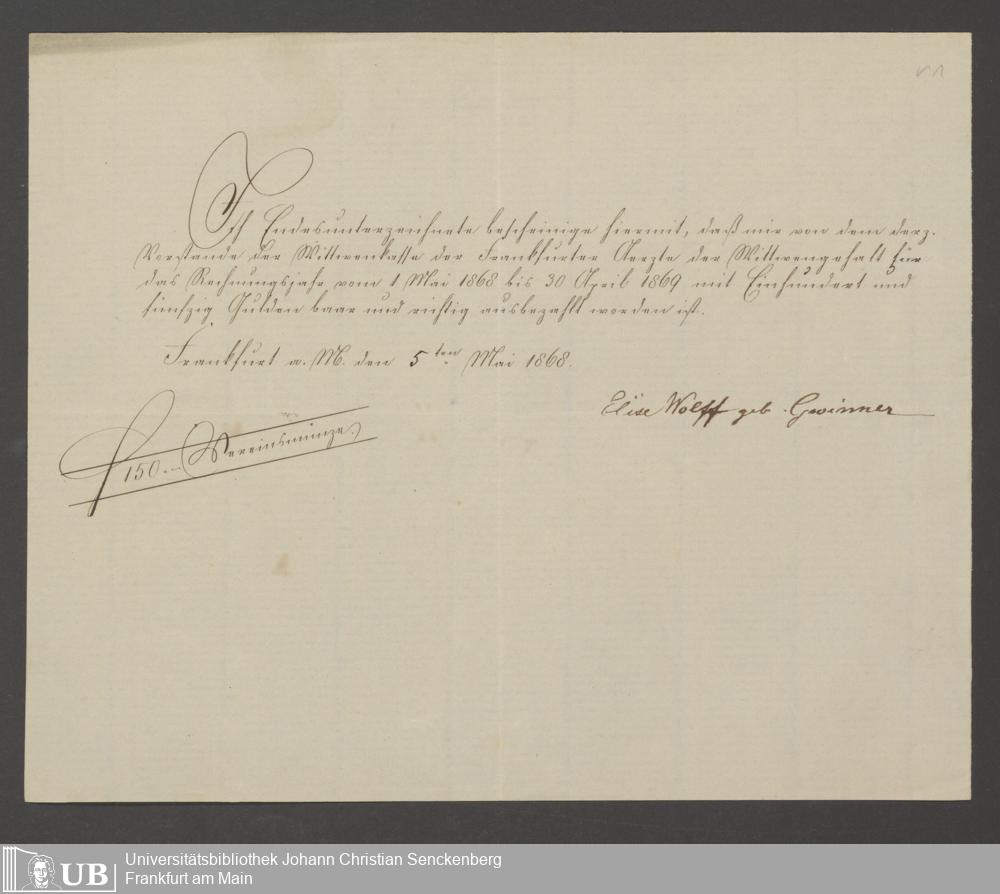 Ich Endesunterzeichnete bescheinige hiermit, daß mir von dem derz.
Vorstande der Wittwenkasse der Frankfurter Aerzte der Wittwengehalt für
das Rechnungsjahr vom 1 Mai 1868 bis 30 April 1869 mit Einhundert und
fünfzig Gulden baar und richtig ausbezahlt worden ist.
Frankfurt a. M. den 5ten Mai 1868.
Elise Wolff geb. Gwinner
f 150.— Vereinsmünze.
UB
Universitätsbibliothek Johann Christian Senckenberg
Frankfurt am Main